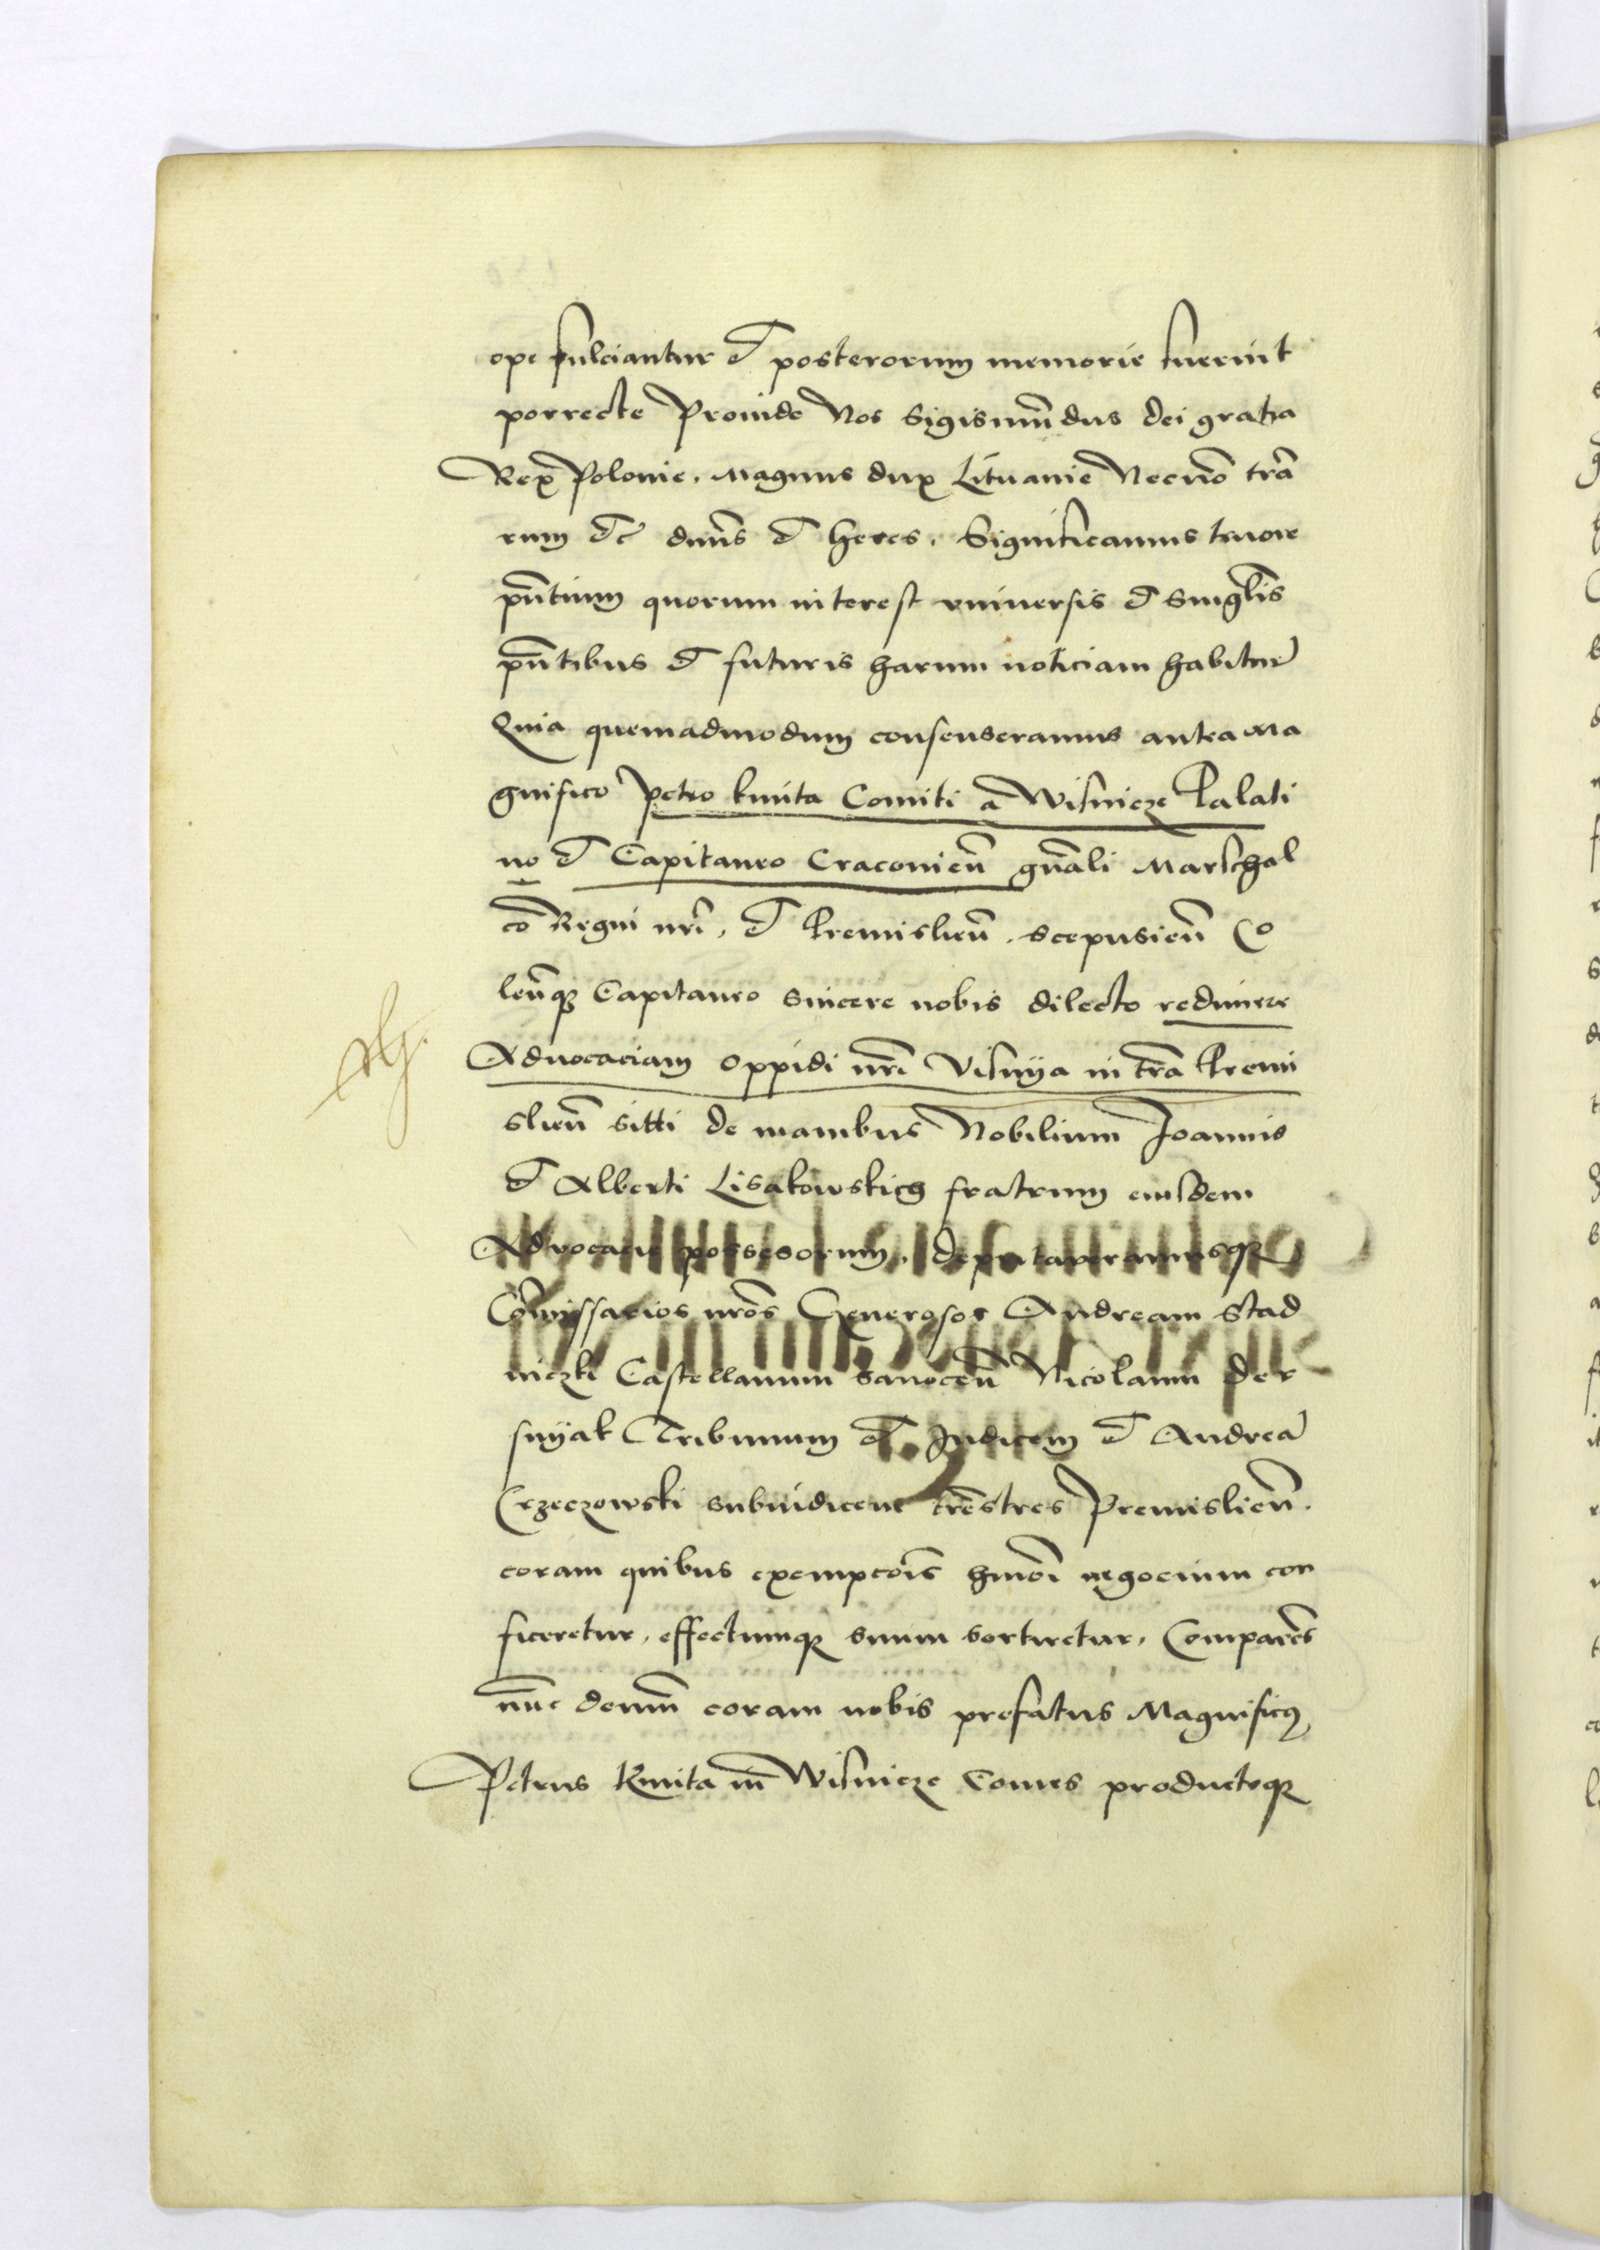 ope fulciantur et posterorum memorie fuerint
porrecte Proinde Nos Sigismūdus dei gratia
Rex Polonie. Magnus dux Lituanie Necnō trā
rum etc̄ dn̄s et heres. Significamus tenore
pn̄tium quorum interest vniuersis et singl̄is
pn̄tibus et futuris harum noticiam habitur̄
Quia quemadmodum consenseramus antea Ma
gnifico Petro kmita Comiti a Wisnicze Palati
no et Capitaneo Cracouien̄ gn̄ali Marschal
co Regni nr̄i, et Premislien̄. Scepusien̄ Co
len̄q̨ Capitaneo sincere nobis dilecto redimere
Aduocaciam oppidi nr̄i Visnya in tr̄a Premi
slien̄ sitti de manibus Nobilium Joannis
et Alberti Lisakowskich fratrum eiusdem
Aduocacie possesorum, deputaueramusq̨
Com̄issarios nr̄os Generosos Andream Stad
niczki Castellanum Sanocen̄ Nicolaum Der
snyak Tribunum et Judicem et Andreā
Crzeczowski subiudicem trēstres Premislien̄.
coram quibus exempcōis hmōi negocium con
ficeretur, effectumq̨ suum sortiretur, Comparēs
nūc demū coram nobis prefatus Magnificꝰ
Petrus Kmita in Wisnicze Comes producteq̨